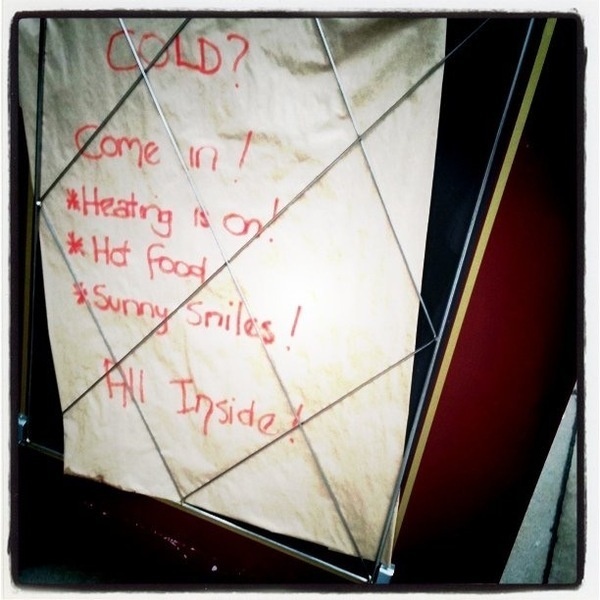 COLD?
Come in!
*Heating is on!
*Hot food
*Sunny Smiles!
All Inside!